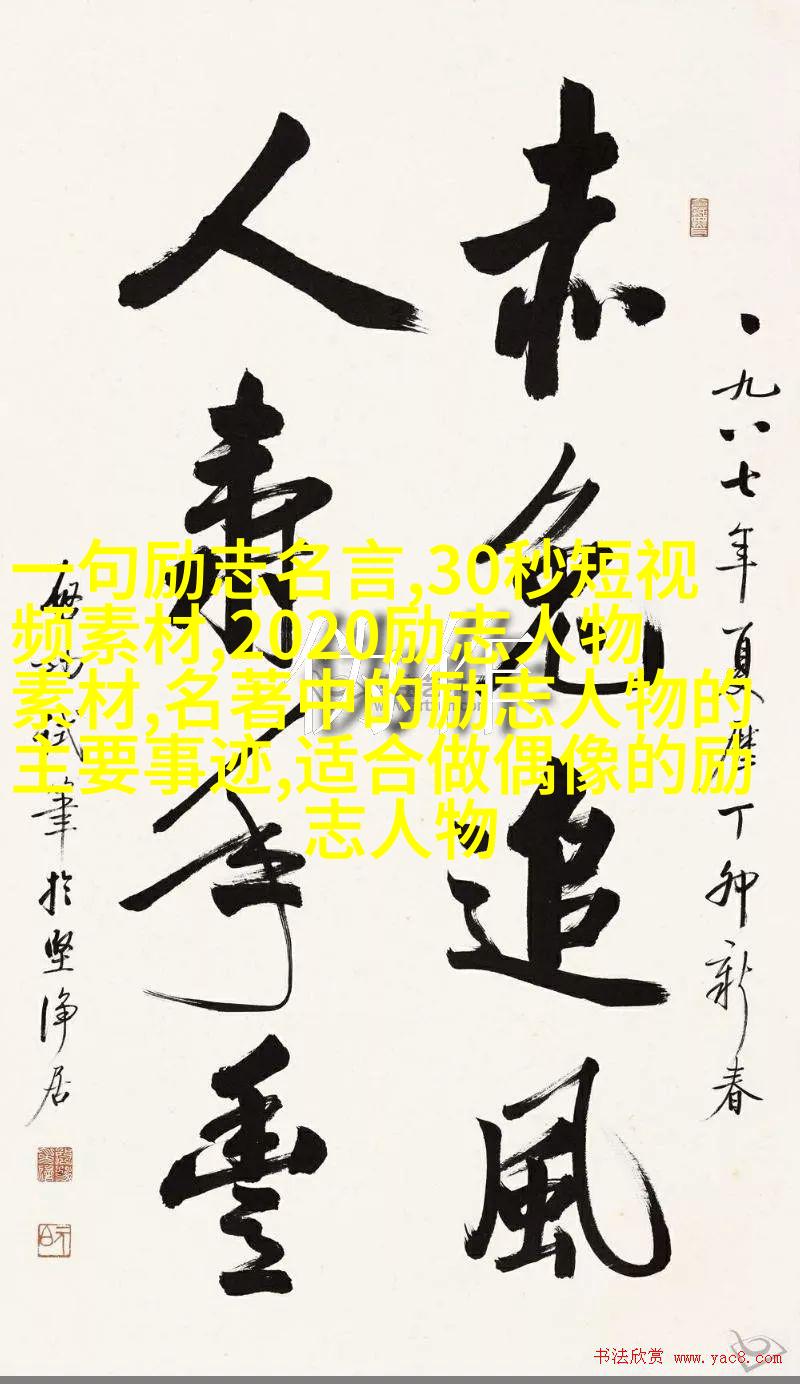 赤兔追風
人壽年豐
一九八七年夏曆丁卯新春
啟功試筆於堅淨居
一句励志名言,30秒短视
频素材,2020励志人物
素材,名著中的励志人物的
主要事迹,适合做偶像的励
志人物
书法欣赏 www.yac8.com